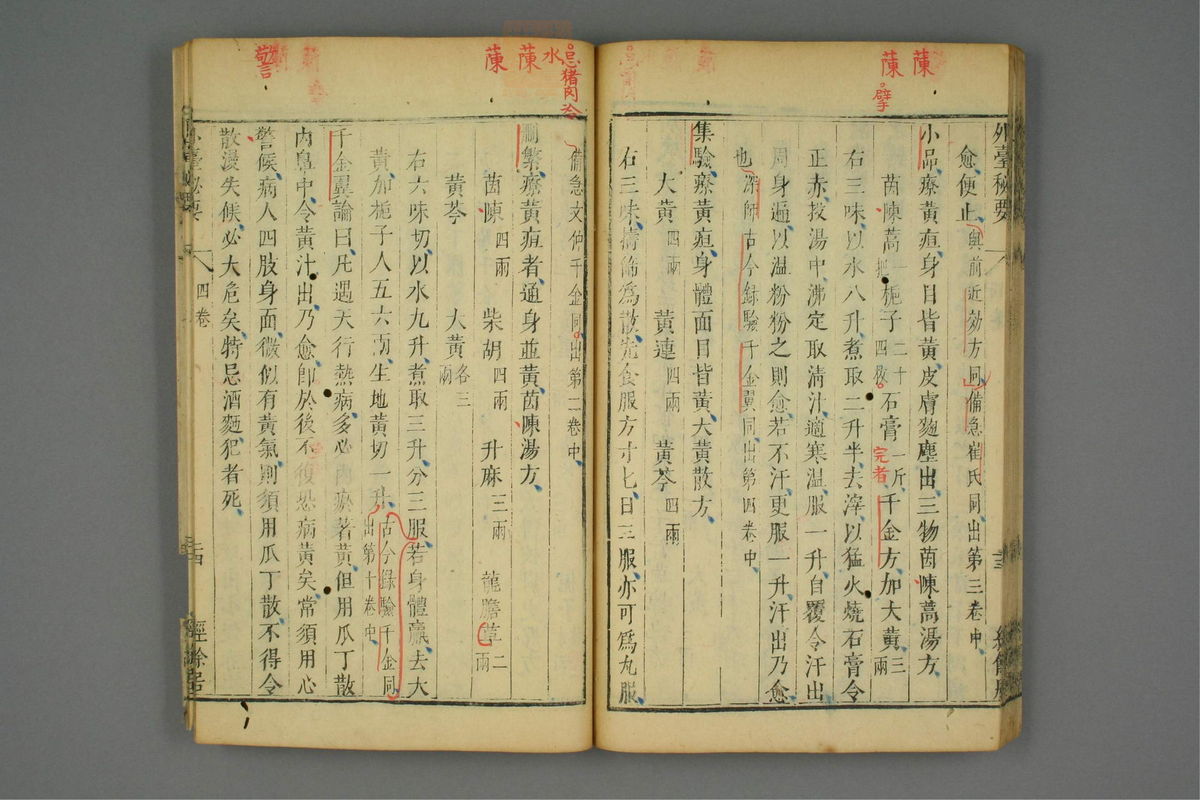 蔯
蔯
擘
外臺秘要
愈便止與前近効方同備急崔氏同出第三卷中
小品療黃疸身目皆黃皮膚麴塵出三物茵蔯蒿湯方
茵蔯蒿一把梔子二十四枚石膏一斤千金方加大黃三兩
完者
右三味以水八升煮取二升半去滓以猛火燒石膏令
正赤投湯中沸定取清汁適寒温服一升自覆令汗出
周身遍以温粉粉之則愈若不汗更服一升汗出乃愈
也深師古今録驗千金翼同出第四卷中
集驗療黃疸身體面目皆黃大黃散方
大黃四兩 黃連四兩 黃芩四兩
右三味擣篩為散先食服方寸匕日三服亦可為丸服
忌猪肉冷
水
蔯
蔯
警
備急文仲千金同出第二卷中
刪繁療黃疸者通身並黃茵蔯湯方
茵蔯四兩 柴胡四兩 升麻三兩 龍膽草二兩
黃芩 大黃各三兩
右六味切以水九升煮取三升分三服若身體羸去大
黃加梔子人五六兩生地黃切一升古今録驗千金同出第十卷中
千金翼論曰凡遇天行熱病多必內瘀著黃但用瓜丁散
內鼻中令黃汁出乃愈即於後不復恐病黃矣常須用心
警候病人四肢身面微似有黃氣則須用瓜丁散不得令
散漫失候必大危矣特忌酒麵犯者死
四卷
經餘居